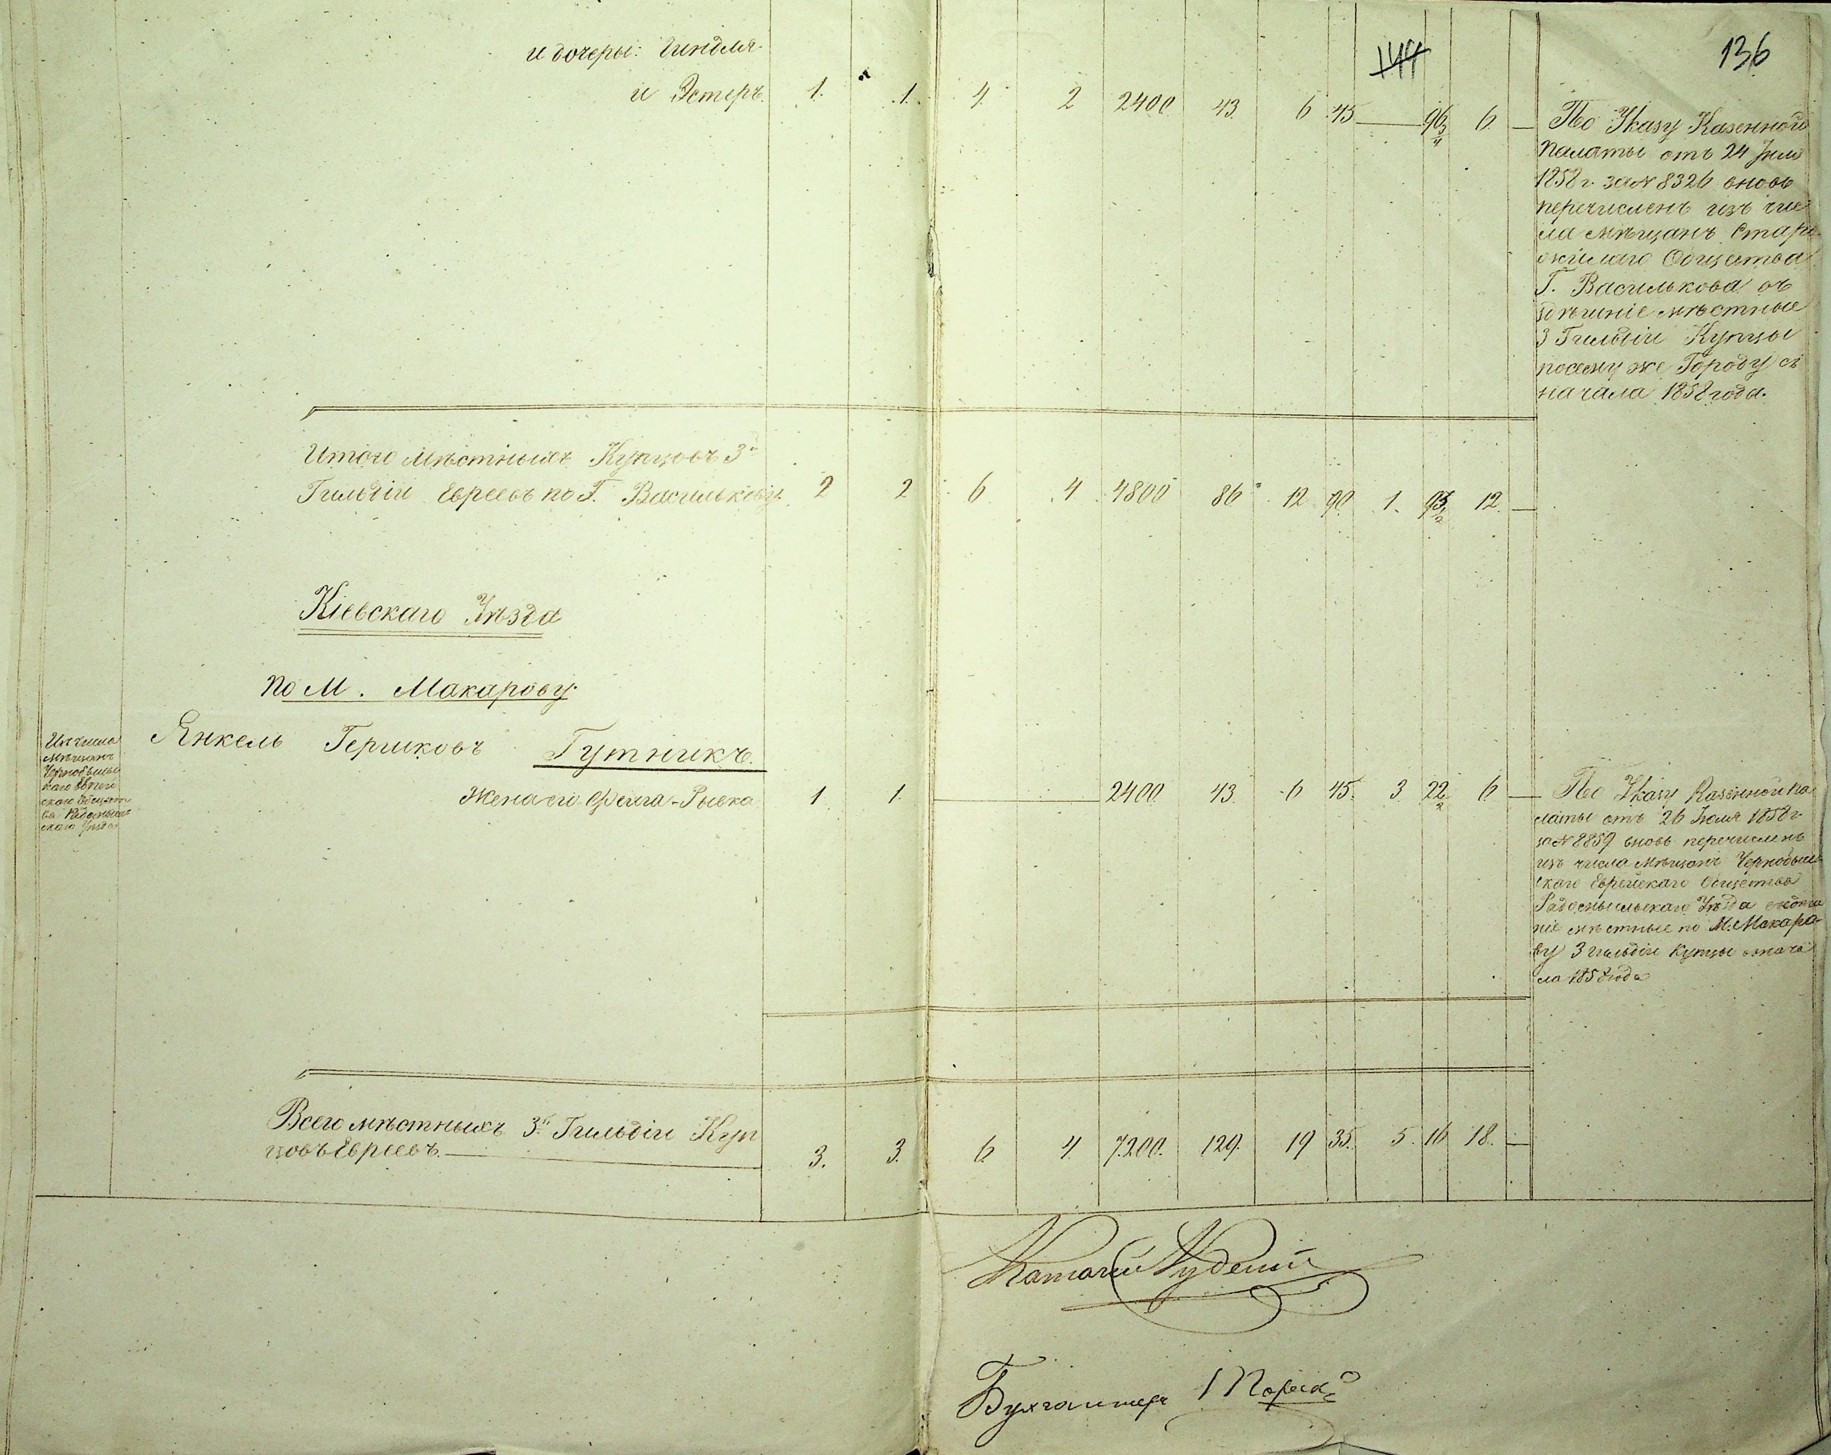 136
144
и дочеры: Гиндля
и Эстеръ. 1. 1. 4. 2 2400 43. 6 45 — 96 3/4 6. —
По Указу Казенной
Палаты отъ 24 Іюля
1858 г. за № 8326 вновь
перечисленъ изъ чис
ла мѣщанъ Старо
жилаго Общества
Г. Василькова въ
здѣшніе мѣстные
3 Гильдіи Купцы
по сему же Городу съ
начала 1858 года.
Итого мѣстныхъ Купцовъ 3й
Гильдіи Евреевъ по Г. Василькову 2 2 6 4 4800 86 12 90. 1. 93 1/2 12. —
Кіевскаго Уѣзда
по М. Макарову.
Янкель Гершковъ Гутникъ.
Жена его Фейга-Рывка 1 1. — 2400. 43. 6 45. 3 22 1/2 6 —
Изъ числа
мѣщанъ
Чернобыльс
каго Еврей
скаго Общест
ва Радомысль
скаго Уѣзда
По Указу Казенной Па
латы отъ 26 Іюля 1858 г.
за № 8859 вновь перечисленъ
изъ числа мѣщанъ Чернобыль
скаго Еврейскаго Общества
Радомысльскаго Уѣзда въ здѣш
ніе мѣстные по М. Макаро-
ву 3 гильдіи Купцы съ нача
ла 1858 года
Всего мѣстныхъ 3й Гильдіи Куп
цовъ Евреевъ. — 3. 3. 6. 4. 7200. 129. 19 35. 5. 16 18. —
Бухгалтеръ